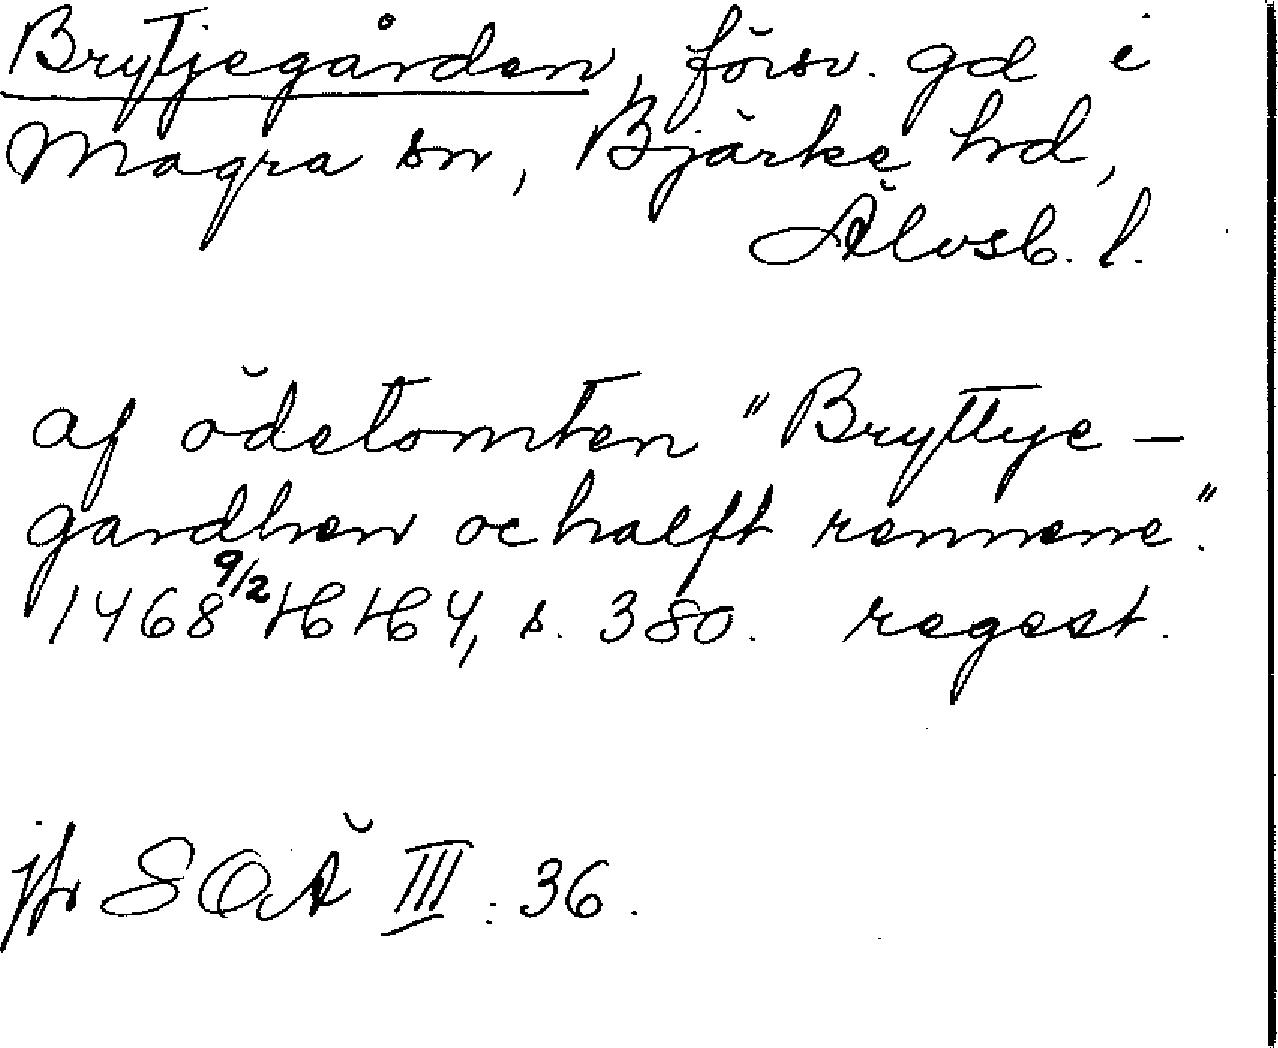 Brytjegården, försv. gd i
Magra sn, Bjärke hd,
Älvsb. l.
af ödetomten "Bryttye-
gardhen oc halft rennene".
1468 9/2 HH 4, s. 380. regest.
jfr SOÄ III: 36.